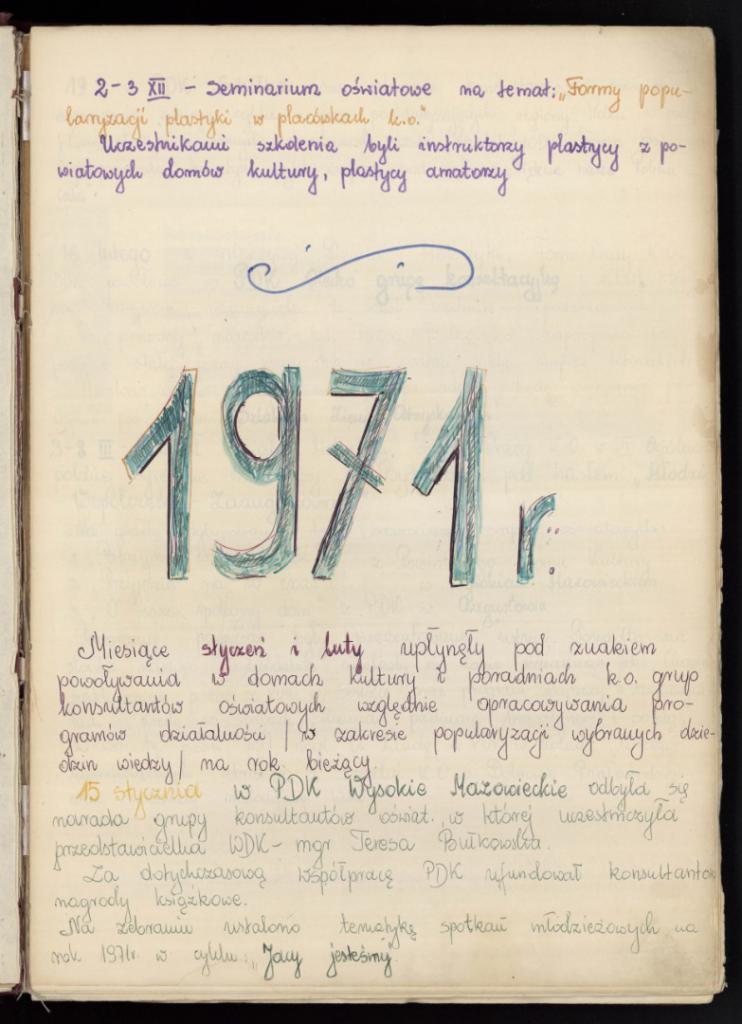 2-3 XII - Seminarium oświatowe na temat: „Formy popu-
laryzacji plastyki w placówkach k.o."
Uczestnikami szkolenia byli instruktorzy plastycy z po-
wiatowych domów kultury, plastycy amatorzy
1971 r.
Miesiące styczeń i luty upłynęły pod znakiem
powoływania w domach kultury i poradniach k.o. grup
konsultantów oświatowych względnie opracowywania pro-
gramów działalności / w zakresie popularyzacji wybranych dzie-
dzin wiedzy / na rok bieżący.
15 stycznia w PDK Wysokie Mazowieckie odbyła się
narada grupy konsultantów oświat. w której uczestniczyła
przedstawicielka WDK - mgr Teresa
Za dotychczasową współpracę PDK ufundował konsultantom
nagrody książkowe.
Na zebraniu ustalono tematykę spotkań młodzieżowych na
rok 1971r. w cyklu: „Jacy jesteśmy"